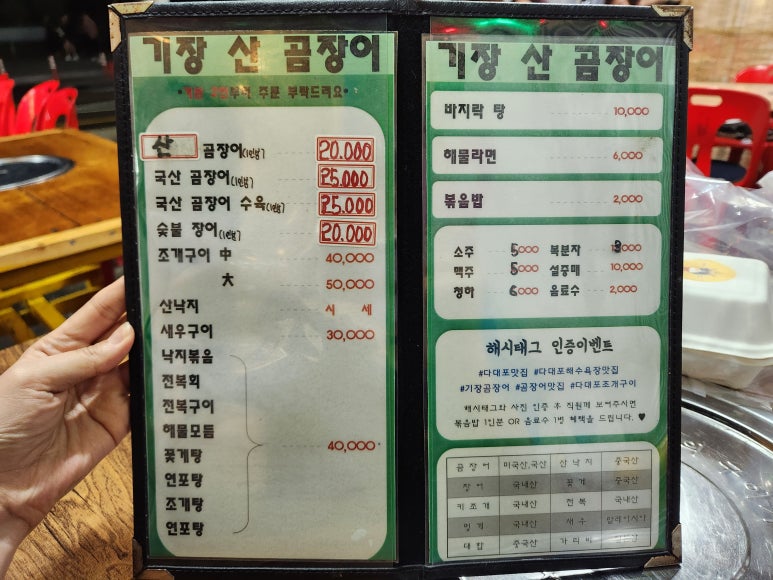 기장 산 곰장어
주문 부탁드려요
산 곰장어(1인분) 20.000
국산 곰장어(1인분) 25.000
국산 곰장어 수육(1인분) 25.000
숯불 장어(1인분) 20.000
조개구이 中 40,000
大 50,000
산낙지 시 세
새우구이 30,000
낙지볶음
전복회
전복구이
해물모듬
꽃게탕
연포탕
조개탕
연포탕
40,000
기장 산 곰장어
바지락 탕 10,000
해물라면 6,000
볶음밥 2,000
소주 5000 복분자
맥주 5000 설중매 10,000
청하 6000 음료수 2,000
해시태그 인증이벤트
#다대포맛집 #다대포해수욕장맛집
#기장곰장어 #곰장어맛집 #다대포조개구이
해시태그와 사진 인증 후 직원께 보여주시면
볶음밥 1인분 OR 음료수 1병 혜택을 드립니다. ♥
곰장어 미국산,국산 산낙지 중국산
장어 국내산 꽃게 중국산
키조개 국내산 전복 국내산
멍게 국내산 새우 말레이시아
대합 중국산 가리비